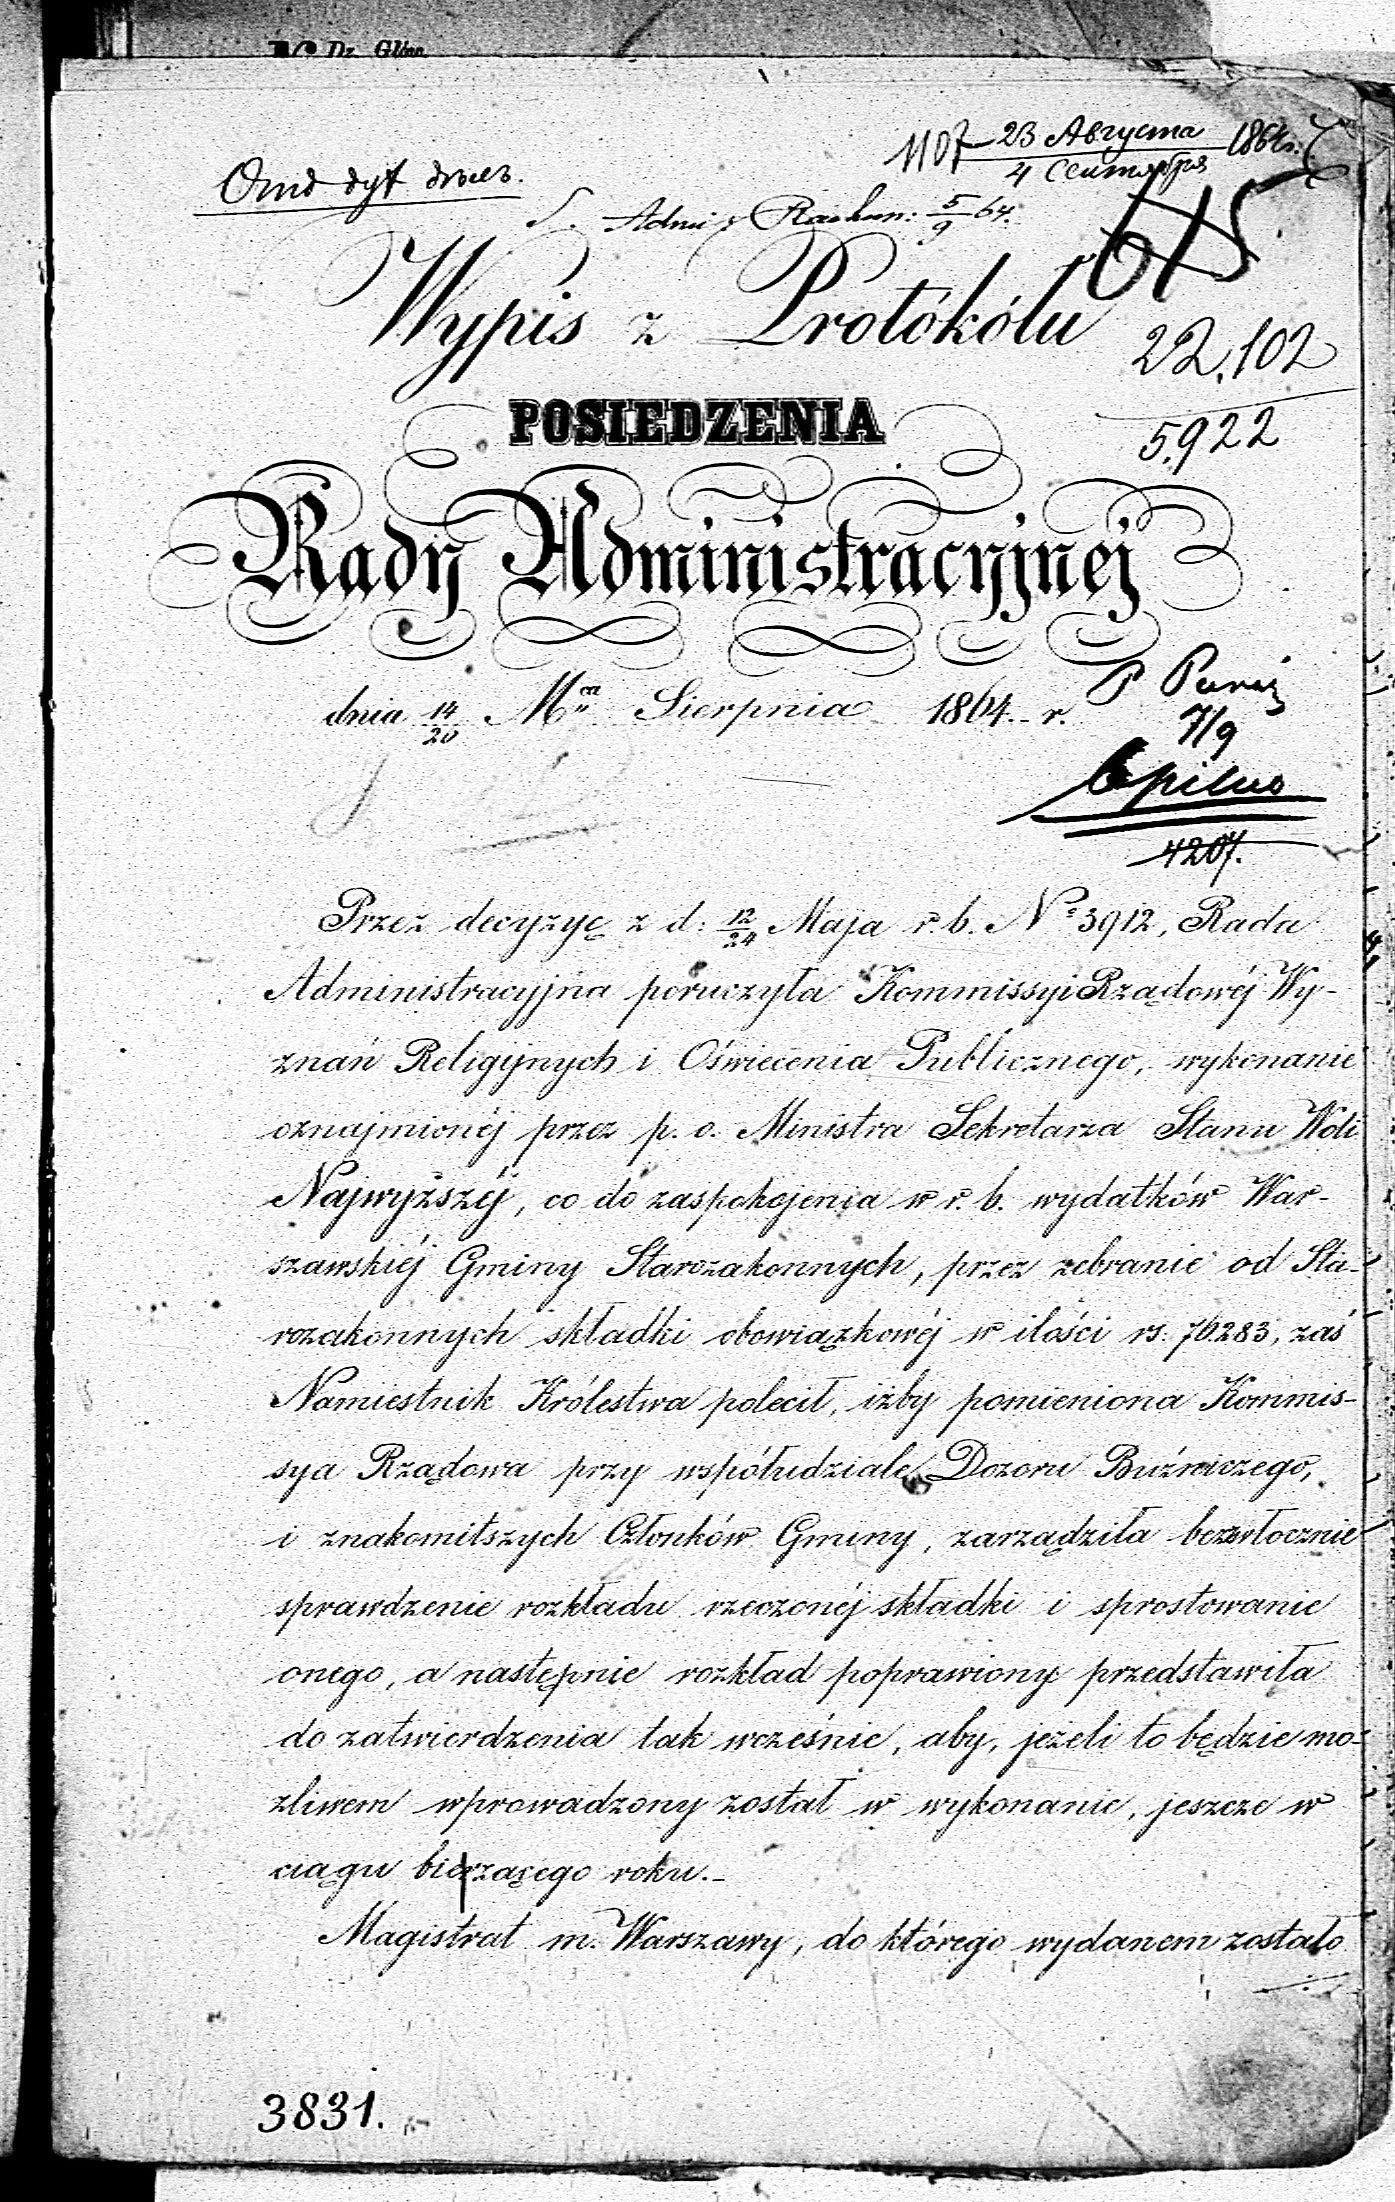 Dz. Główn.
1107 23 Августа 1864 г.
4 Сентября
Adm: Rachun: 5/9 64.
615
Wypis z Protókółu
22.102
5922
POSIEDZENIA
Rady Administracyjnej
dnia 14/20 Mca Sierpnia 1864 r.
P
7/9
pilno
4207.
Przez decyzyę z d: 12/24 Maja r. b. No 3912, Rada
Administracyjna poruczyła Kommissyi Rządowéj Wy-
znań Religijnych i Oświecenia Publicznego, wykonanie
oznajmionéj przez p. o. Ministra Sekretarza Stanu Woli
Najwyższéj, co do zaspokojenia w r. b. wydatków War-
szawskiéj Gminy Starozakonnych, przez zebranie od Sta-
rozakonnych składki obowiązkowéj w ilości rs. 70.283, zaś
Namiestnik Królestwa polecił, iżby pomieniona Kommis-
sya Rządowa przy współudziale Dozoru Bużniczego,
i znakomitszych Członków Gminy, zarządziła bezzwłocznie
sprawdzenie rozkładu rzeczonéj składki i sprostowanie
onego, a następnie rozkład poprawiony przedstawiła
do zatwierdzenia tak wcześnie, aby, jeżeli to będzie mo-
żliwem wprowadzony został w wykonanie, jeszcze w
ciągu bieżącego roku.-
Magistrat m. Warszawy, do którego wydanem zostało
3831.